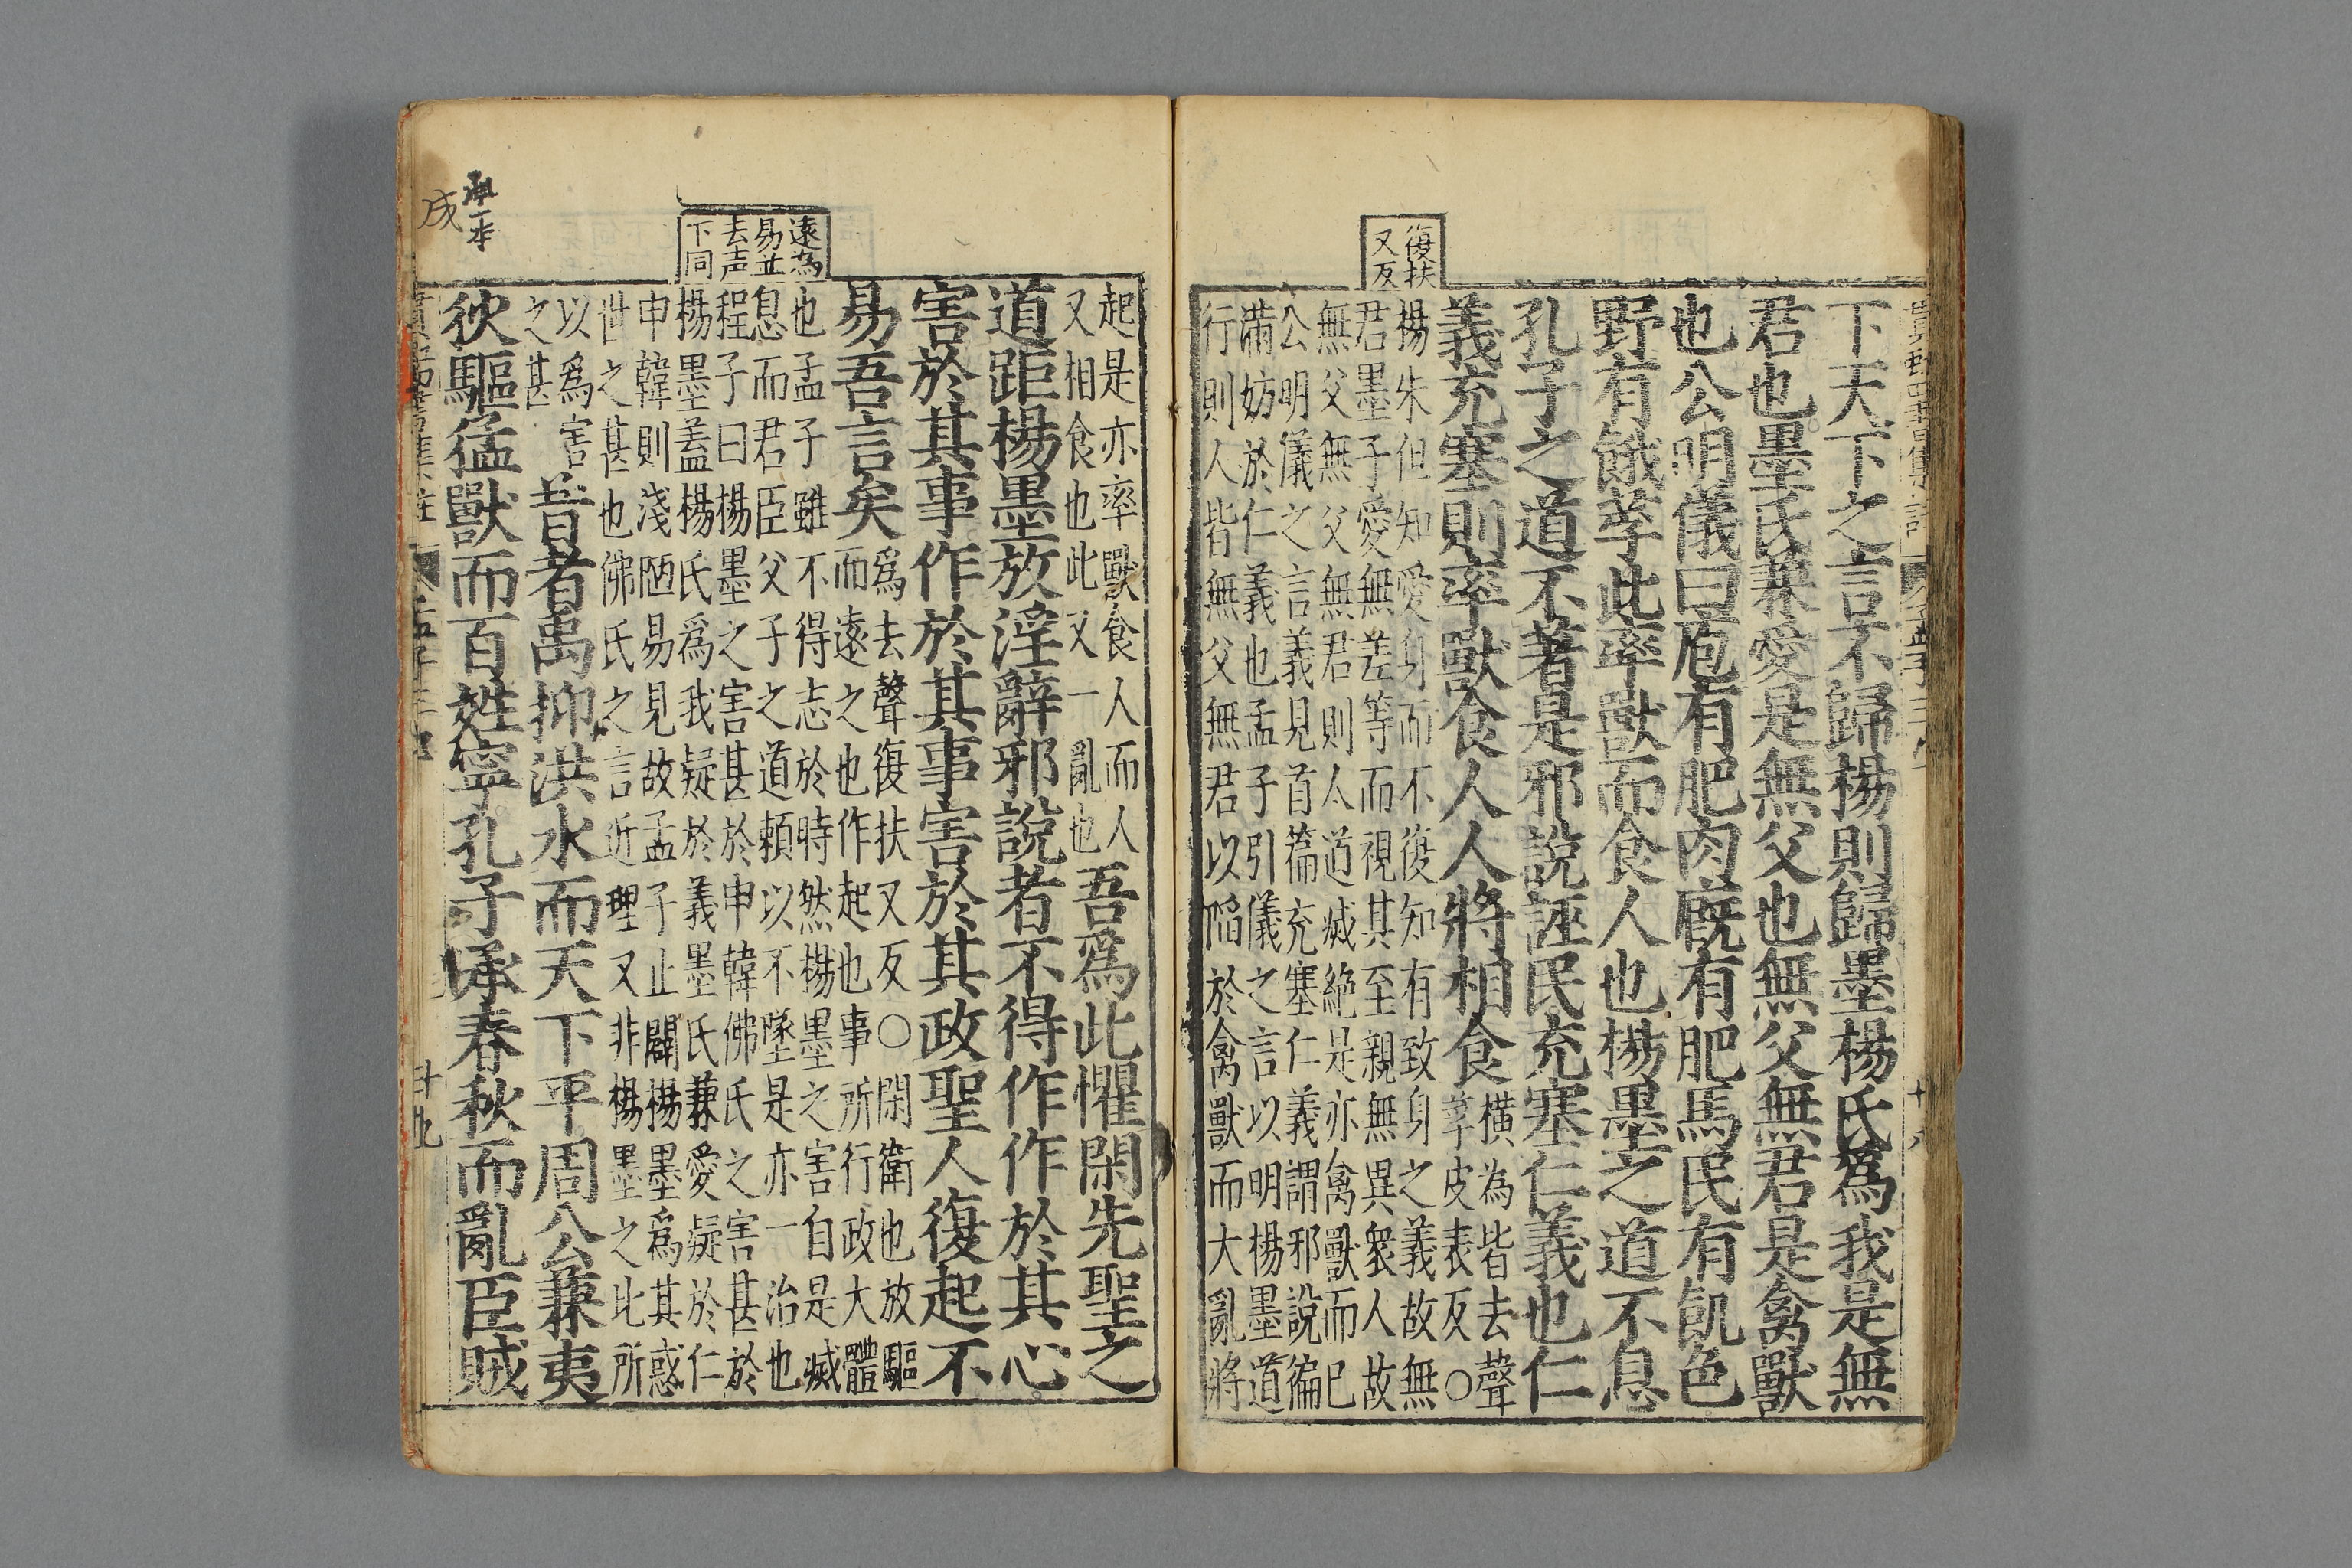 復扶
又反
下天下之言不歸楊則歸墨楊氏爲我是無
君也墨氏兼愛是無父也無父無君是禽獸
也公明儀曰庖有肥肉廐有肥馬民有飢色
野有餓莩此率獸而食人也楊墨之道不息
孔子之道不著是邪說誣民充塞仁義也仁
義充塞則率獸食人人將相食
橫為皆去聲
莩皮表反○
楊朱但知愛身而不復知有致身之義故無
君墨子愛無差等而視其至親無異衆人故
無父無父無君則人道滅絶是亦禽獸而已
公明儀之言義見首篇充塞仁義謂邪說徧
滿妨於仁義也孟子引儀之言以明楊墨道
行則人皆無父無君以陷於禽獸而大亂將
十八
遠為
易並
去声
下同
起是亦率獸食人而人
又相食也此又一亂也
吾爲此懼閑先聖之
道距楊墨放淫辭邪說者不得作作於其心
害於其事作於其事害於其政聖人復起不
易吾言矣
爲去聲復扶又反○閑衛也放驅
而遠之也作起也事所行政大體
也孟子雖不得志於時然楊墨之害自是滅
息而君臣父子之道賴以不墜是亦一治也
程子曰楊墨之害甚於申韓佛氏之害甚於
楊墨蓋楊氏爲我疑於義墨氏兼愛疑於仁
申韓則淺陋易見故孟子止闢楊墨爲其惑
世之甚也佛氏之言近理又非楊墨之此所
以爲害
之甚
昔者禹抑洪水而天下平周公兼夷
狄驅猛獸而百姓寧孔子成春秋而亂臣賊
成
孟子三
十九